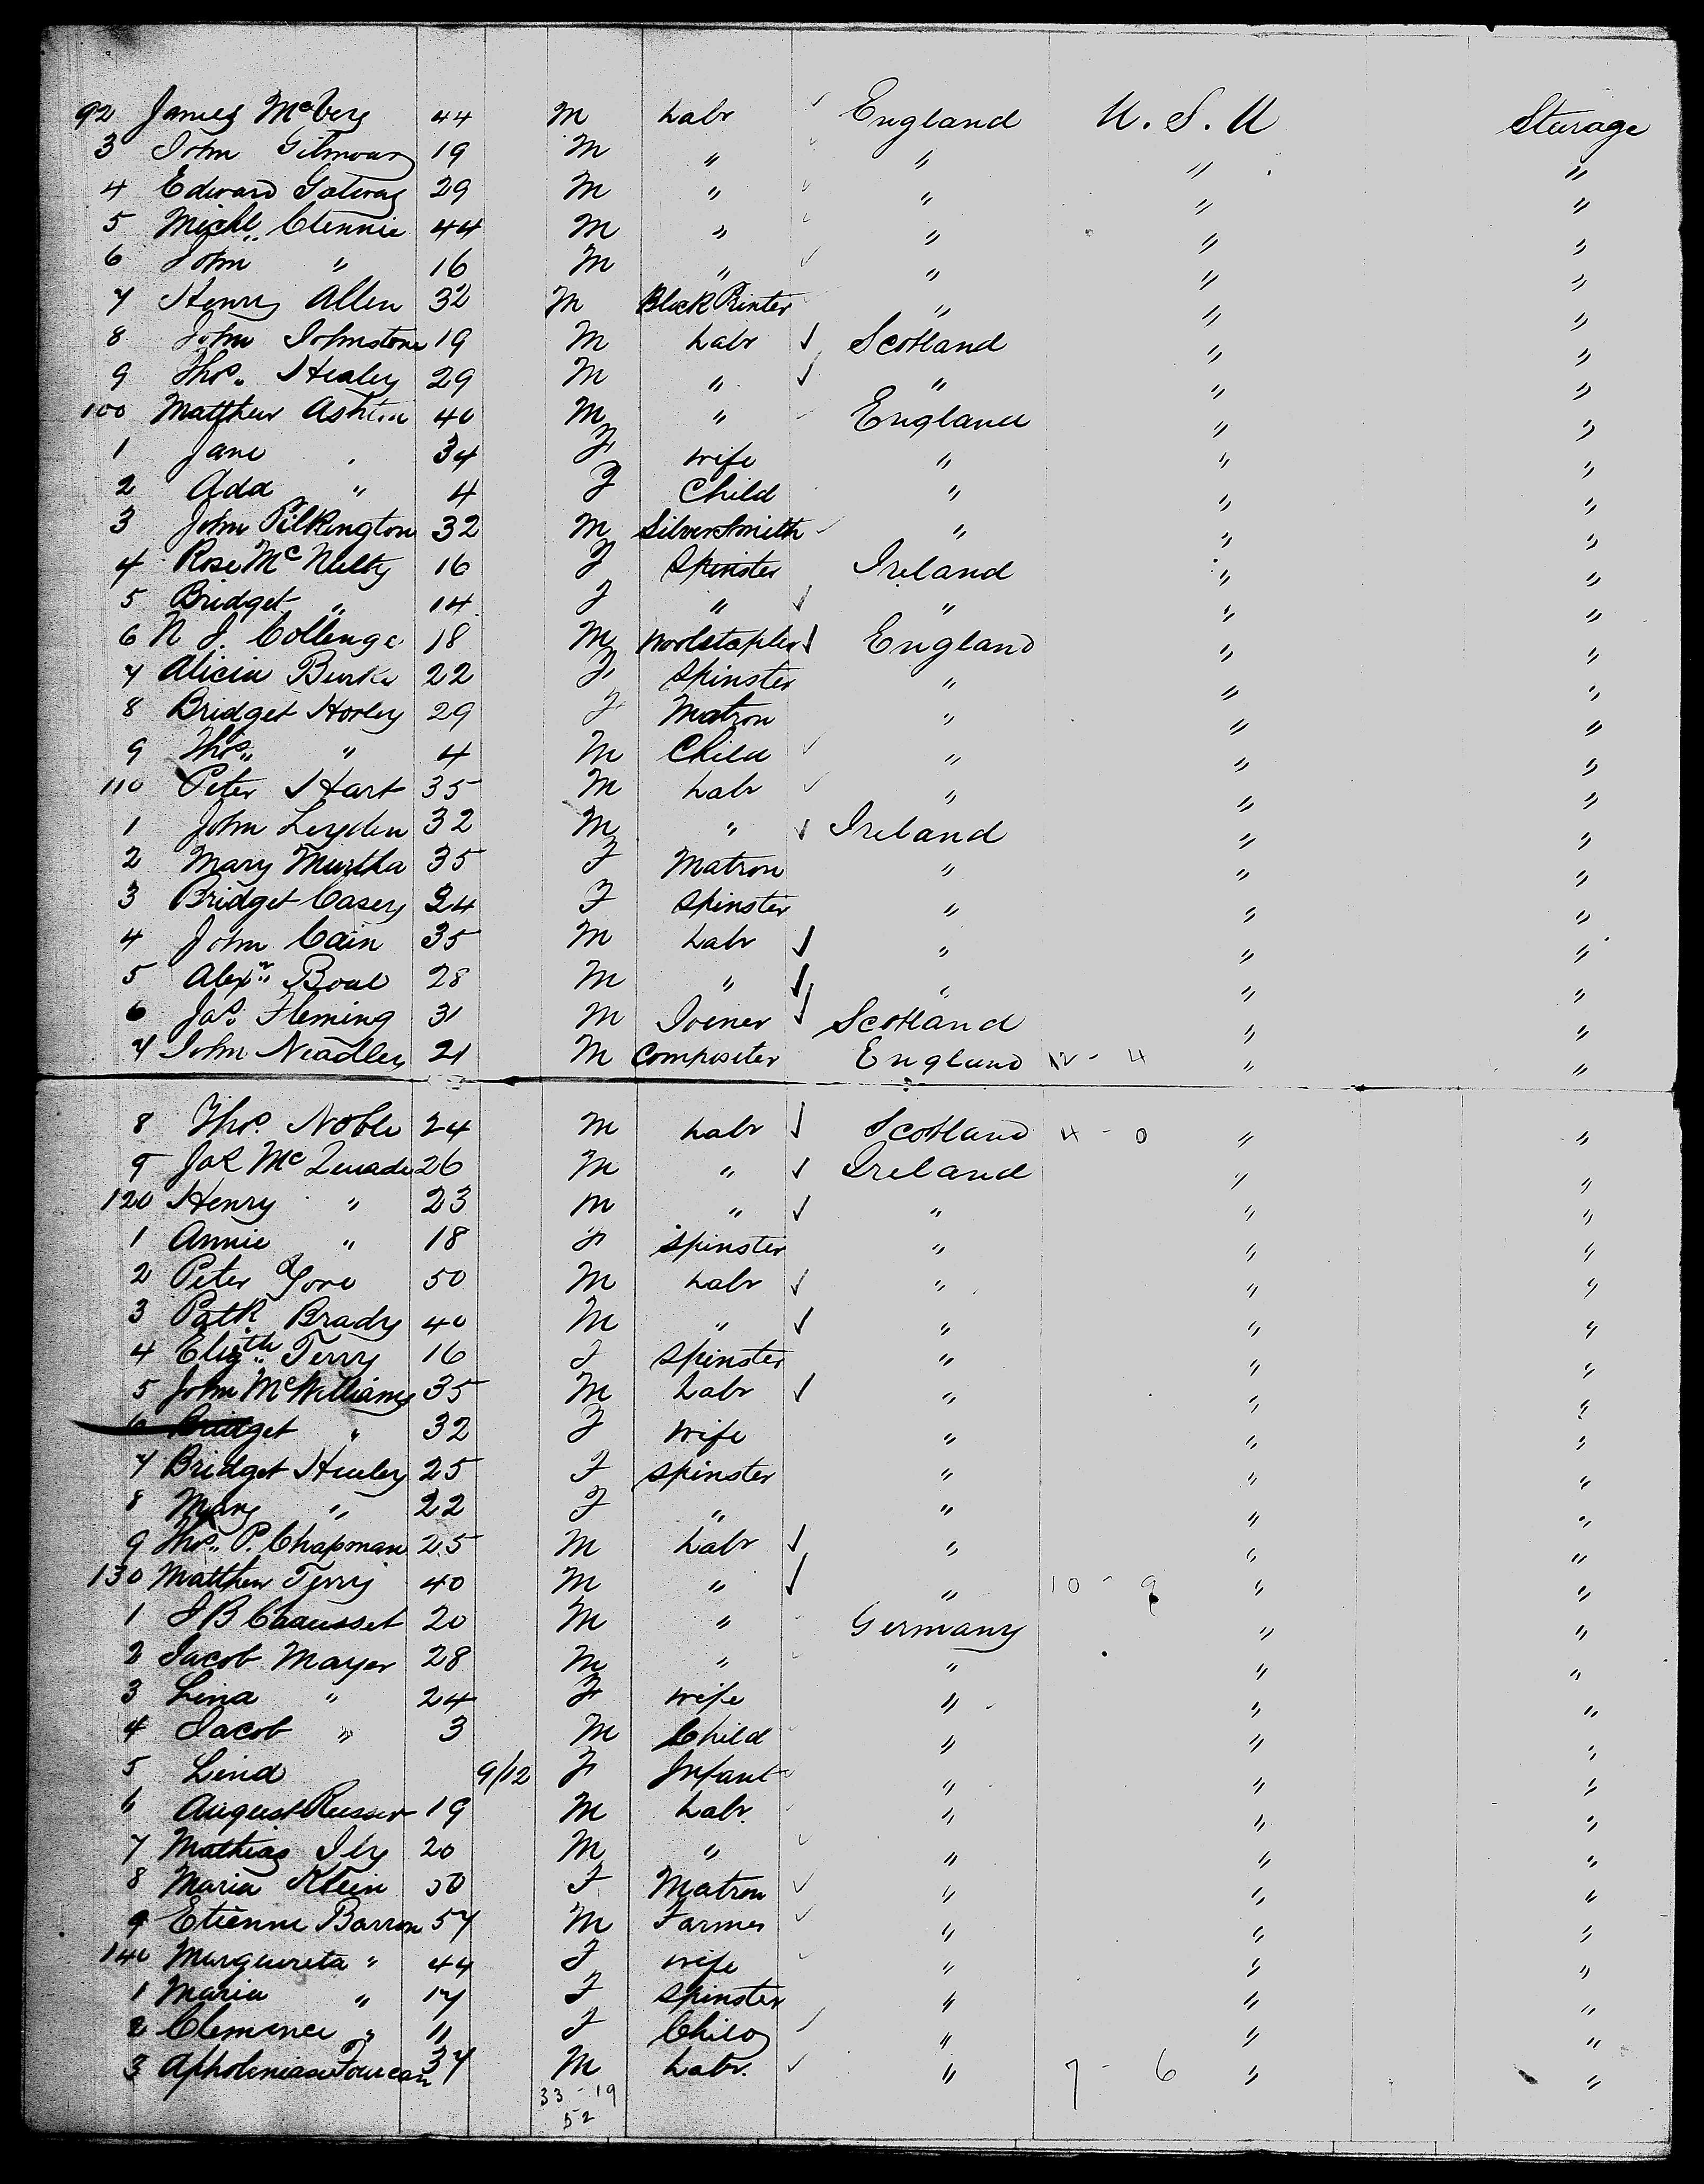 92 James McVey 44 M Labr ✓ England U.S.A Sturage
3 John Gilmour 19 M " ✓ " " "
4 Edward Gatway 29 M " ✓ " " "
5 Michl. Clennie 44 M " ✓ " " "
6 John " 16 M " ✓ " " "
7 Henry Allen 32 M Block Printer " " "
8 John Johnstone 19 M Labr ✓ Scotland " "
9 Thos. Healey 29 M " ✓ " " "
100 Matthew Ashton 40 M " England " "
1 Jane " 34 F wife " " "
2 Ada " 4 F Child " " "
3 John Pilkington 32 M Silversmith ✓ " " "
4 Rose McNulty 16 F Spinster Ireland " "
5 Bridget " 14 F " ✓ " " "
6 N J. Collenge 18 M Woolstapler ✓ England " "
7 Alicia Burke 22 F Spinster " " "
8 Bridget Horley 29 F Matron " " "
9 Thos. " 4 M Child ✓ " " "
110 Peter Hart 35 M Labr ✓ " " "
1 John Leyden 32 M " ✓ Ireland " "
2 Mary Murtha 35 F Matron " " "
3 Bridget Casey 24 F Spinster " " "
4 John Cain 35 M Labr ✓ " " "
5 Alexr. Boal 28 M " ✓ " " "
6 Jas. Fleming 31 M Joiner ✓ Scotland " "
7 John Neadley 21 M Compositer England 12 - 4 " "
8 Thos. Noble 24 M Labr ✓ Scotland 4 - 0 " "
9 Jas McQuade 26 M " ✓ Ireland " "
120 Henry " 23 M " ✓ " " "
1 Annie " 18 F Spinster " " "
2 Peter Gore 50 M Labr ✓ " " "
3 Patk Brady 40 M " ✓ " " "
4 Elizth. Terry 16 F Spinster " " "
5 John McWilliams 35 M Labr ✓ " " "
6 Bridget " 32 F Wife " " "
7 Bridget Hurley 25 F Spinster " " "
8 Mary " 22 F " " " "
9 Thos. P. Chapman 25 M Labr ✓ " " "
130 Matthew Terry 40 M " ✓ " 10 - 9 " "
1 J B Caausset 20 M " Germany " "
2 Jacob Mayer 28 M " " " "
3 Lina " 24 F wife " " "
4 Jacob " 3 M Child " " "
5 Lina 9/12 F Infant " " "
6 August Reuser 19 M Labr. " " "
7 Mathias Ily 20 M " ✓ " " "
8 Maria Klein 50 F Matron ✓ " " "
9 Etienne Barron 57 M Farmer ✓ " " "
140 Margaureta " 44 F wife ✓ " " "
1 Maria " 17 F Spinster " " "
2 Clemence " 11 F Child ✓ " " "
3 37 M Labr. ✓ " 7 - 6 " "
33 - 19
52